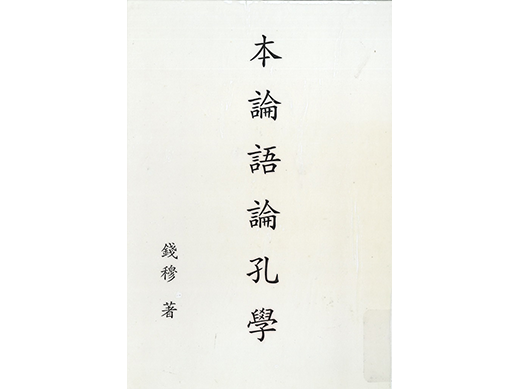 本論語論孔學
錢穆 著